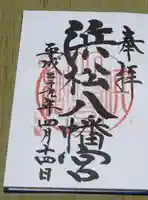 奉拝
浜松八幡宮
平成三十年四月十四日